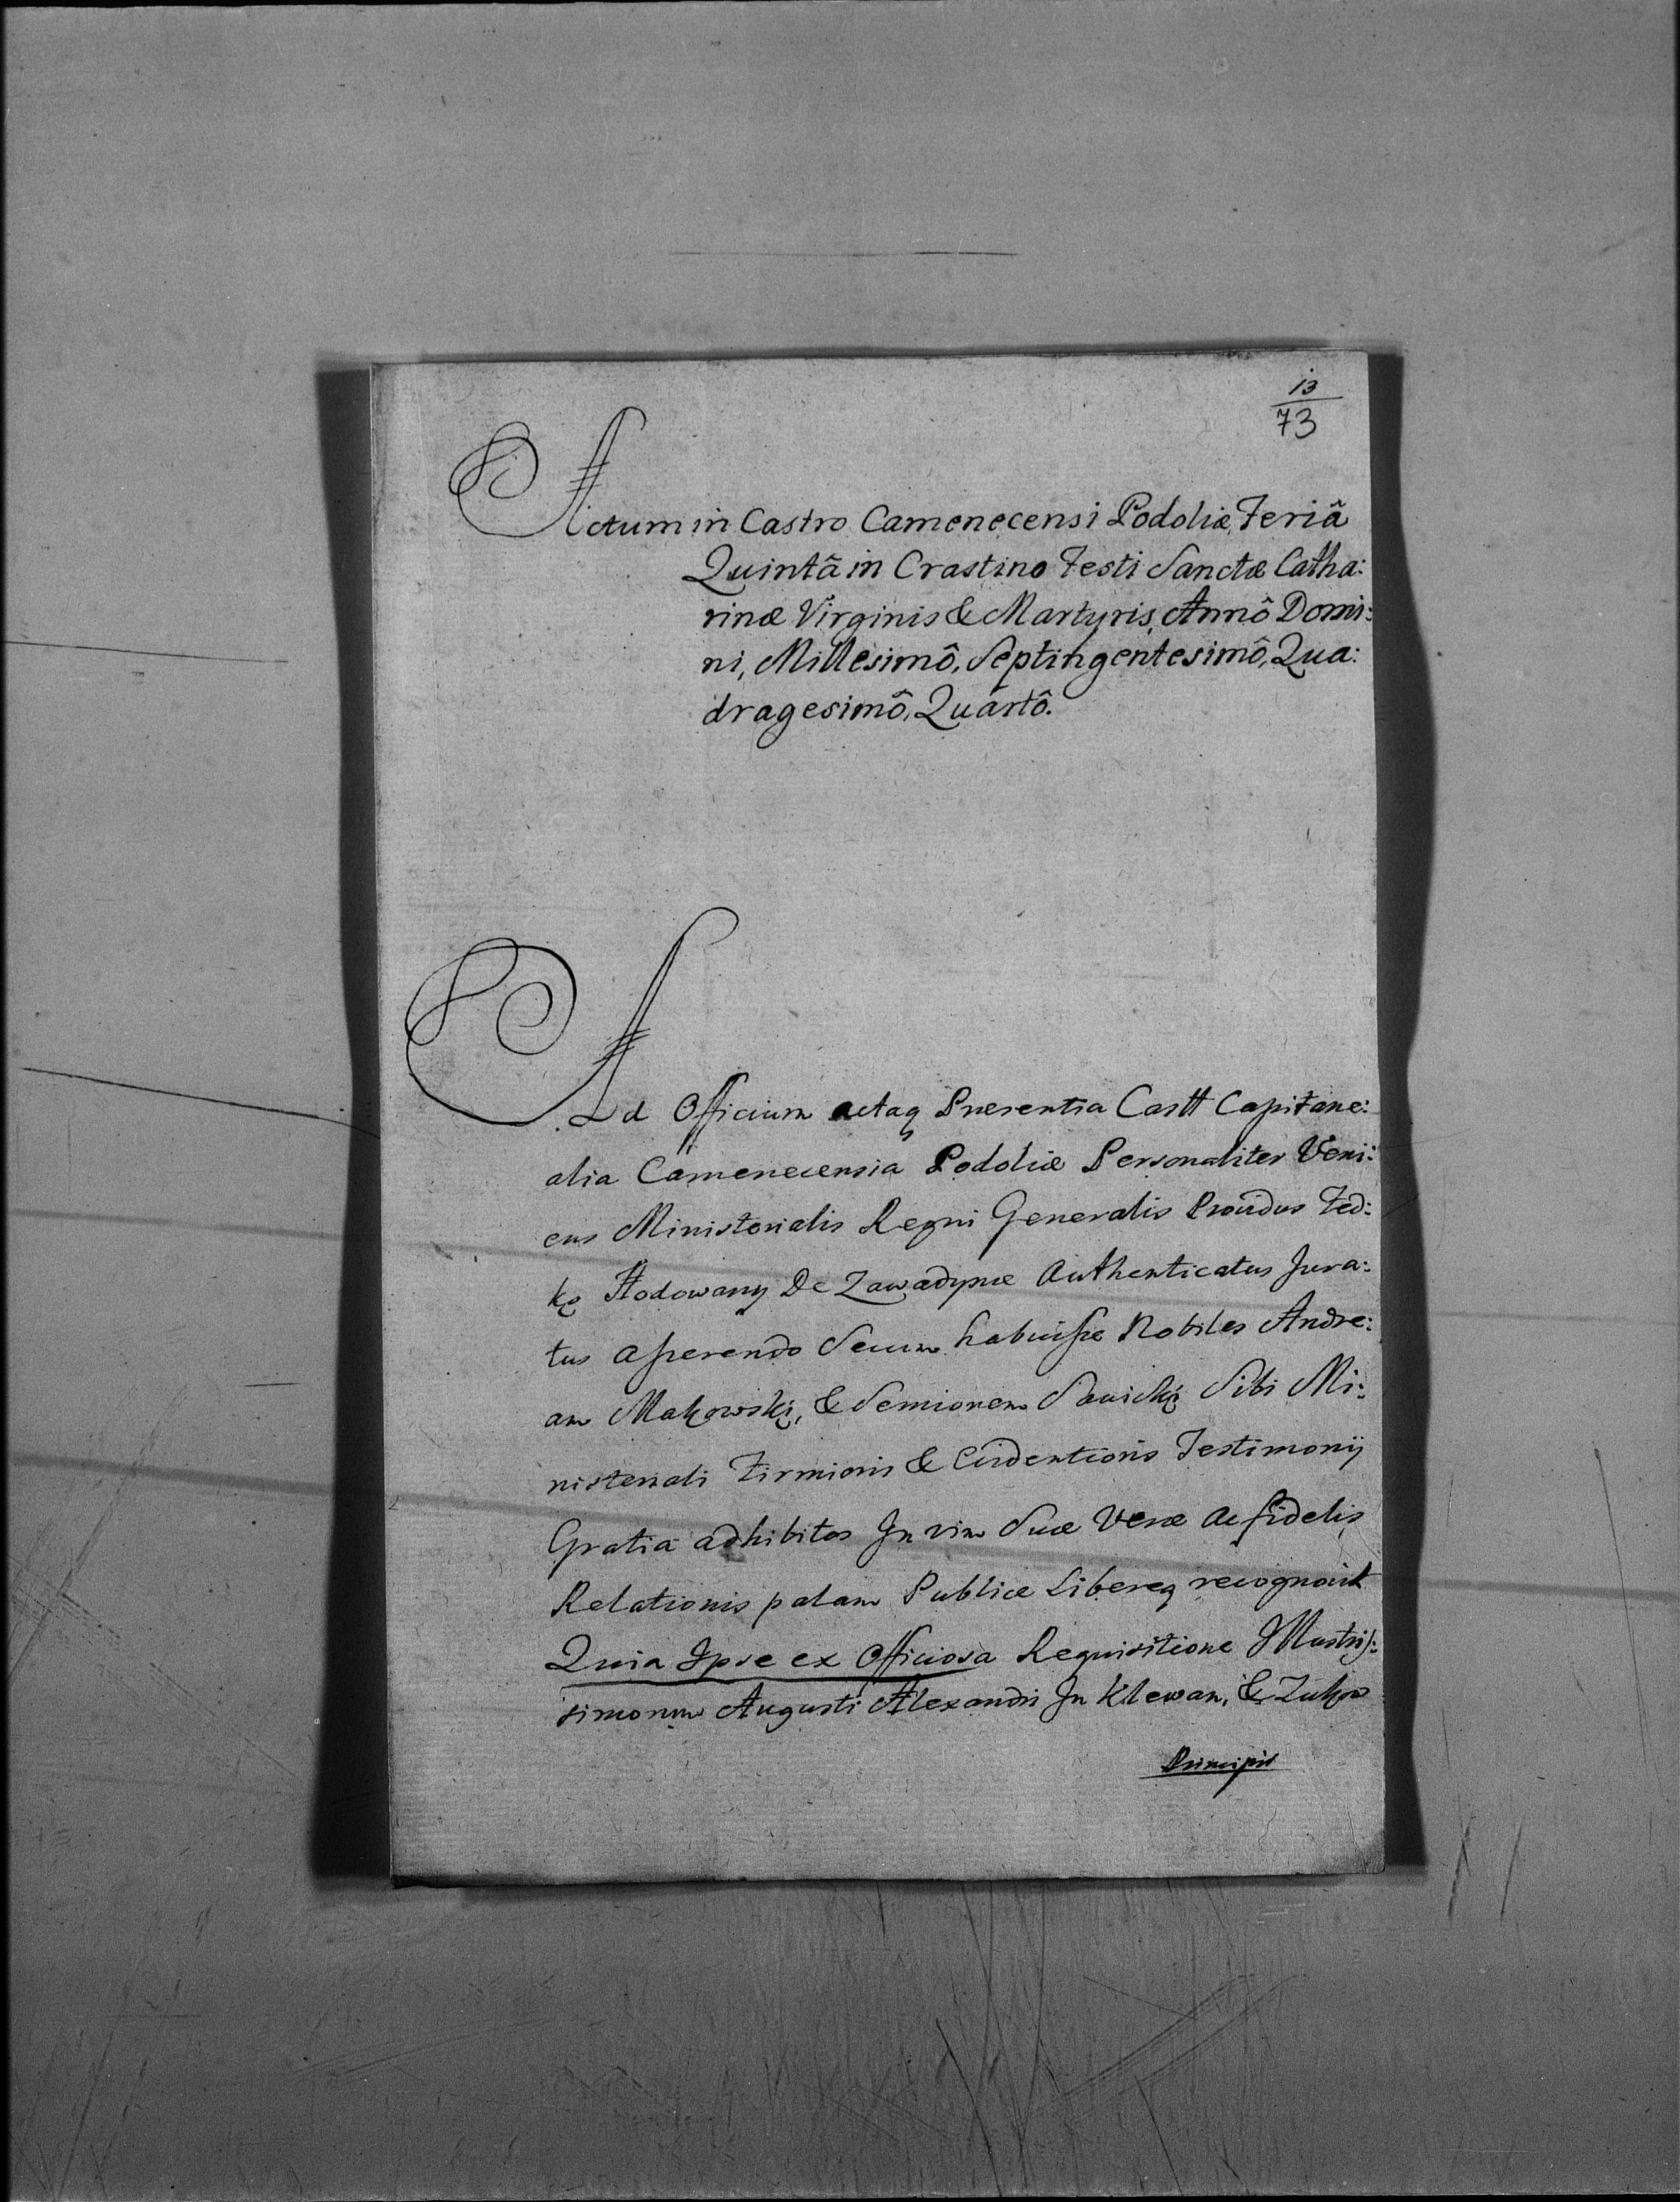 13
73
Actum in Castro Camenecensi Podoliæ, Feriâ
Quintâ in Crastino Festi Sanctæ Catha:
rinæ Virginis & Martyris, Annô Domi:
ni, Millesimô, Septingentesimô, Qua:
dragesimô, Quartô.
Ad Officium actaq Presentia Castt Capitane:
alia Camenecensia Podoliæ Personaliter Veni:
ens Ministerialis Regni Generalis Providus Fed:
ko Hodowany De Zawadynce Authenticatus Jura:
tus asserendo Secum habuisse Nobiles Andre:
am Makowski, & Semionem Sawicki Sibi Mi:
nisteriali Firmioris & Evidentioris Testimonij
Gratia adhibitos In vim Suæ Veræ ac fidelis
Relationis palam Publice Libereq recognovit
Quia Ipse ex Officiosa Requisitione Illustris:
simorum Augusti Alexandri In Klewan, & Zukow
Principis